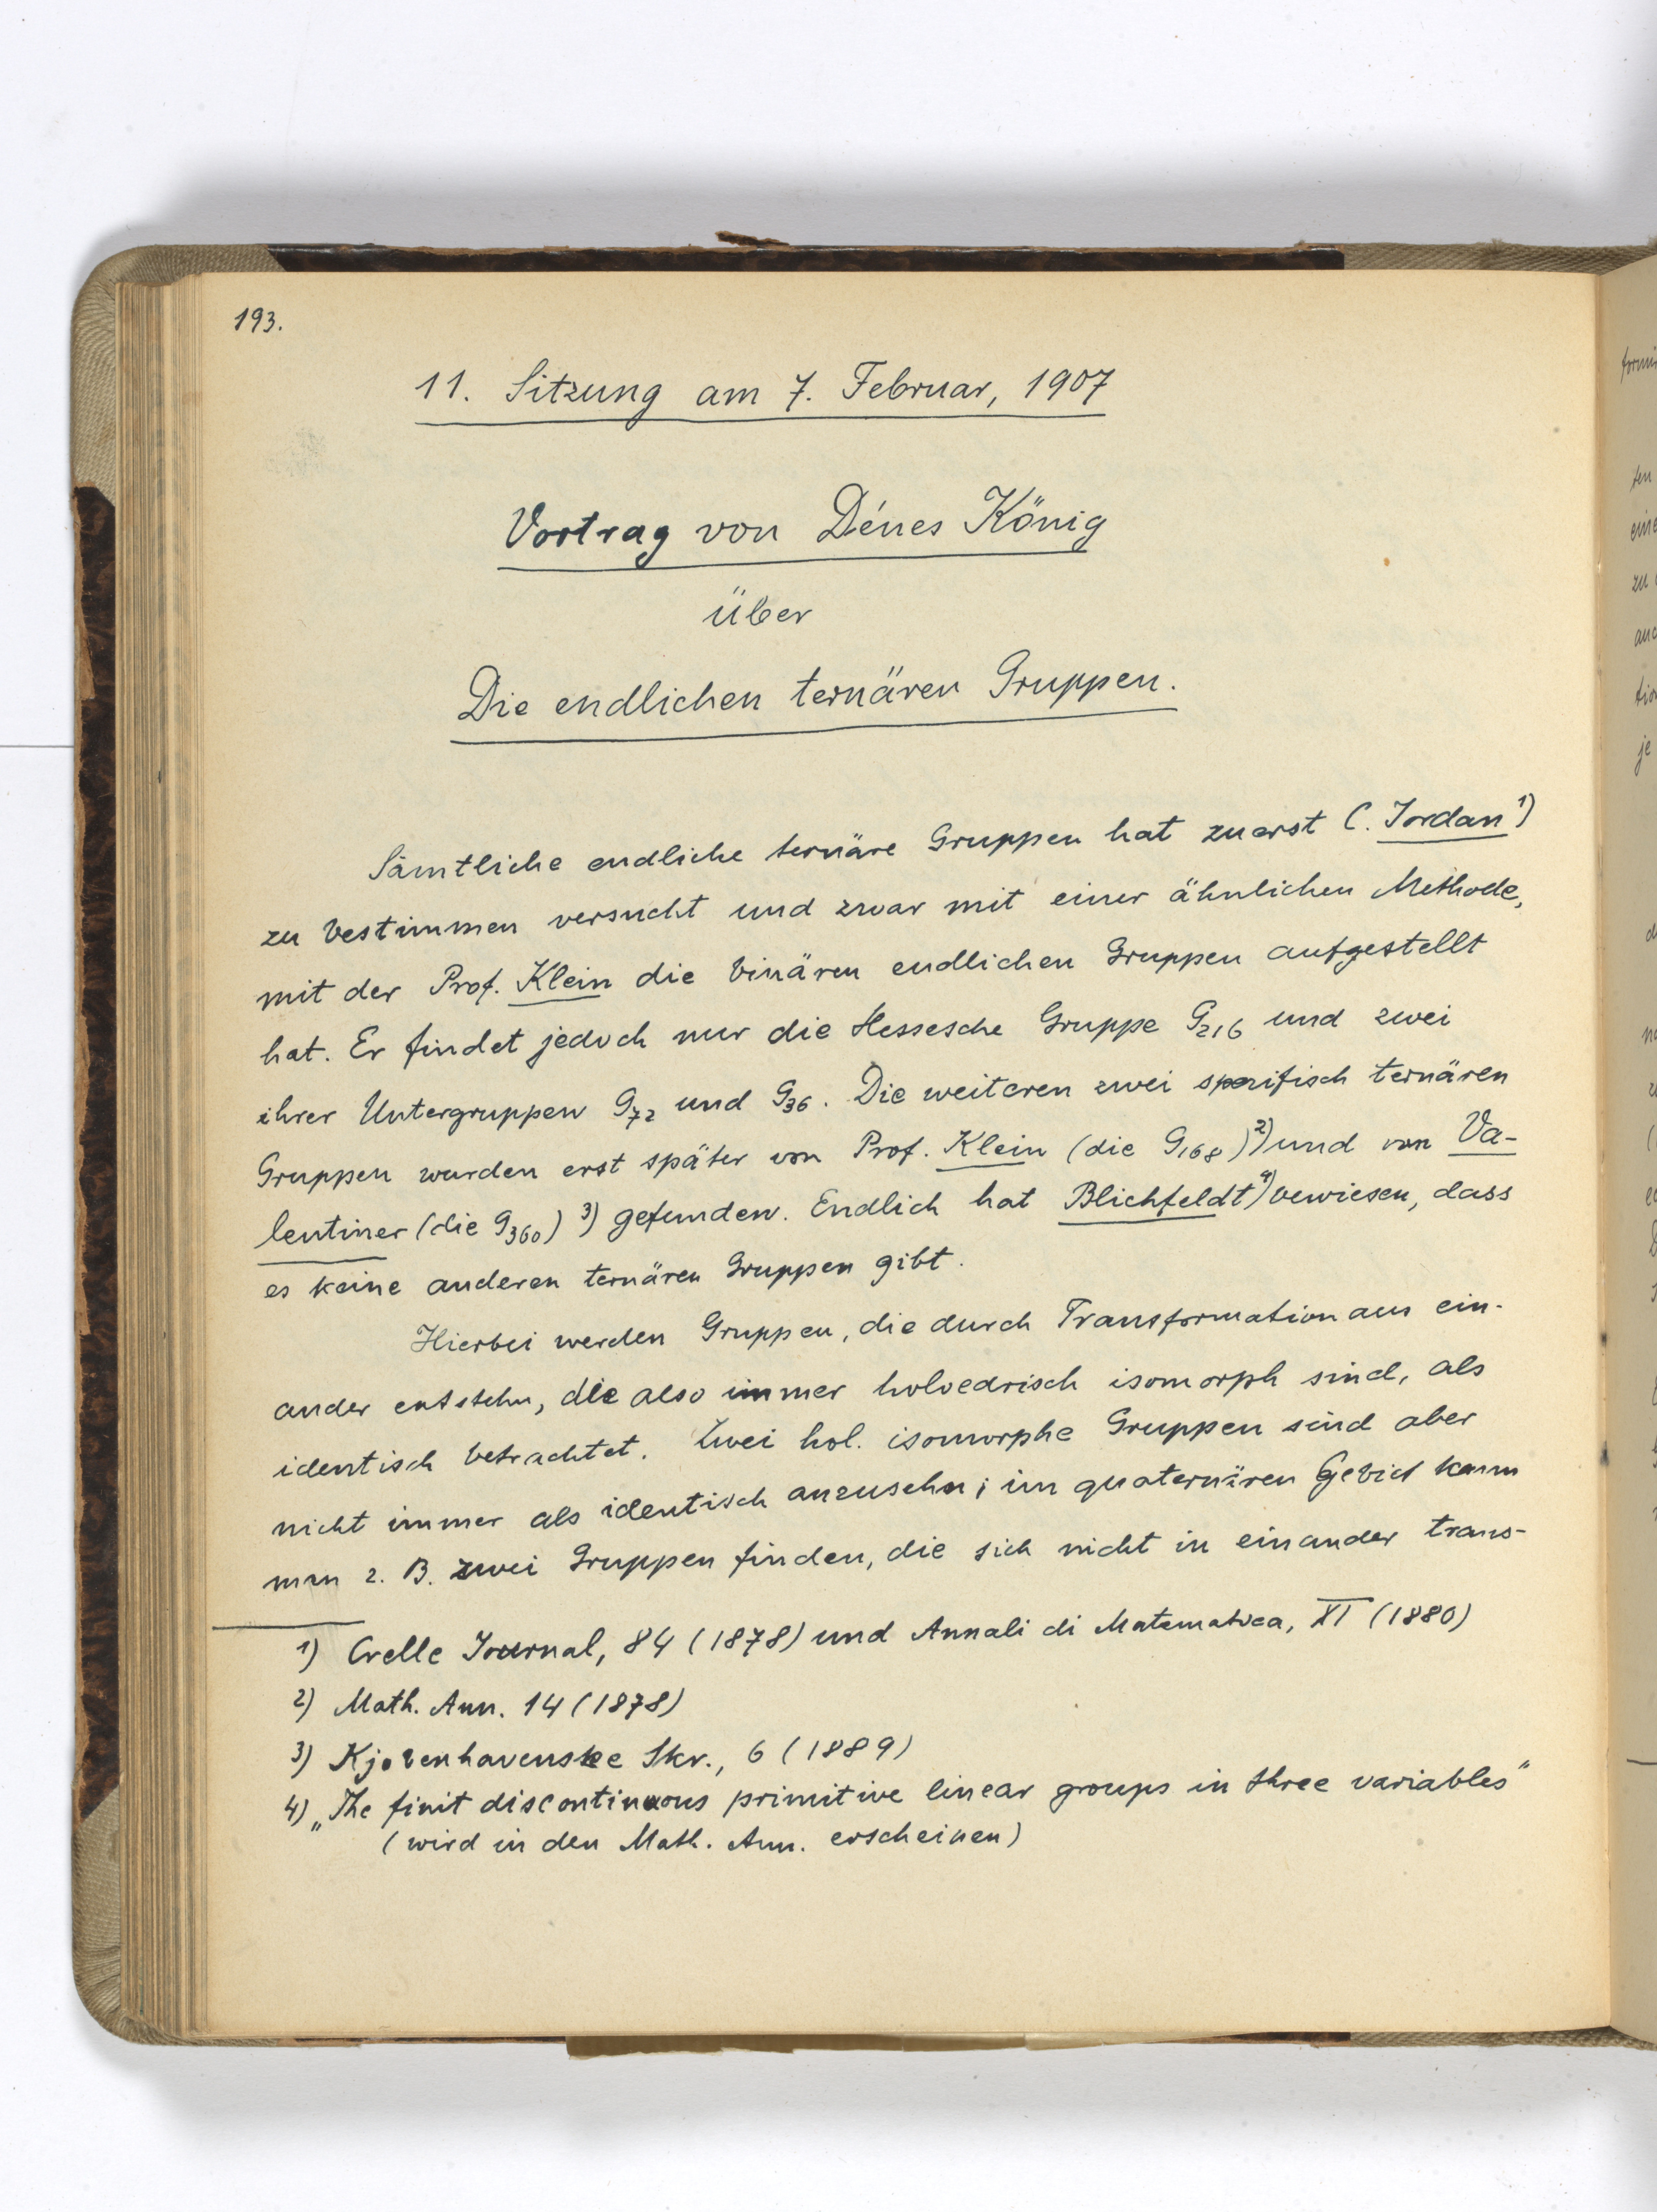 193.
11. Sitzung am 7. Februar, 1907
Vortrag von Dénes König
über
Die endlichen ternären Gruppen.
Sämtliche endliche ternäre Gruppen hat zuerst C. Jordan¹)
zu bestimmen versucht und zwar mit einer ähnlichen Methode,
mit der Prof. Klein die binären endlichen Gruppen aufgestellt
hat. Er findet jedoch nur die Hessesche Gruppe G₂₁₆ und zwei
ihrer Untergruppen G₇₂ und G₃₆. Die weiteren zwei spezifisch ternären
Gruppen wurden erst später von Prof. Klein (die G₁₆₈)²) und von Va-
lentiner (die G₃₆₀)³) gefunden. Endlich hat Blichfeldt⁴) bewiesen, dass
es keine anderen ternären Gruppen gibt.
Hierbei werden Gruppen, die durch Transformation aus ein-
ander entstehn, die also immer holoedrisch isomorph sind, als
identisch betrachtet. Zwei hol. isomorphe Gruppen sind aber
nicht immer als identisch anzusehn; im quaternären Gebiet kann
man z. B. zwei Gruppen finden, die sich nicht in einander trans-
1) Crelle Journal, 84 (1878) und Annali di Matematica, XI (1880)
2) Math. Ann. 14 (1878)
3) Kjobenhavenske Skr., 6 (1889)
4) „The finit discontinuous primitive linear groups in three variables"
(wird in den Math. Ann. erscheinen)